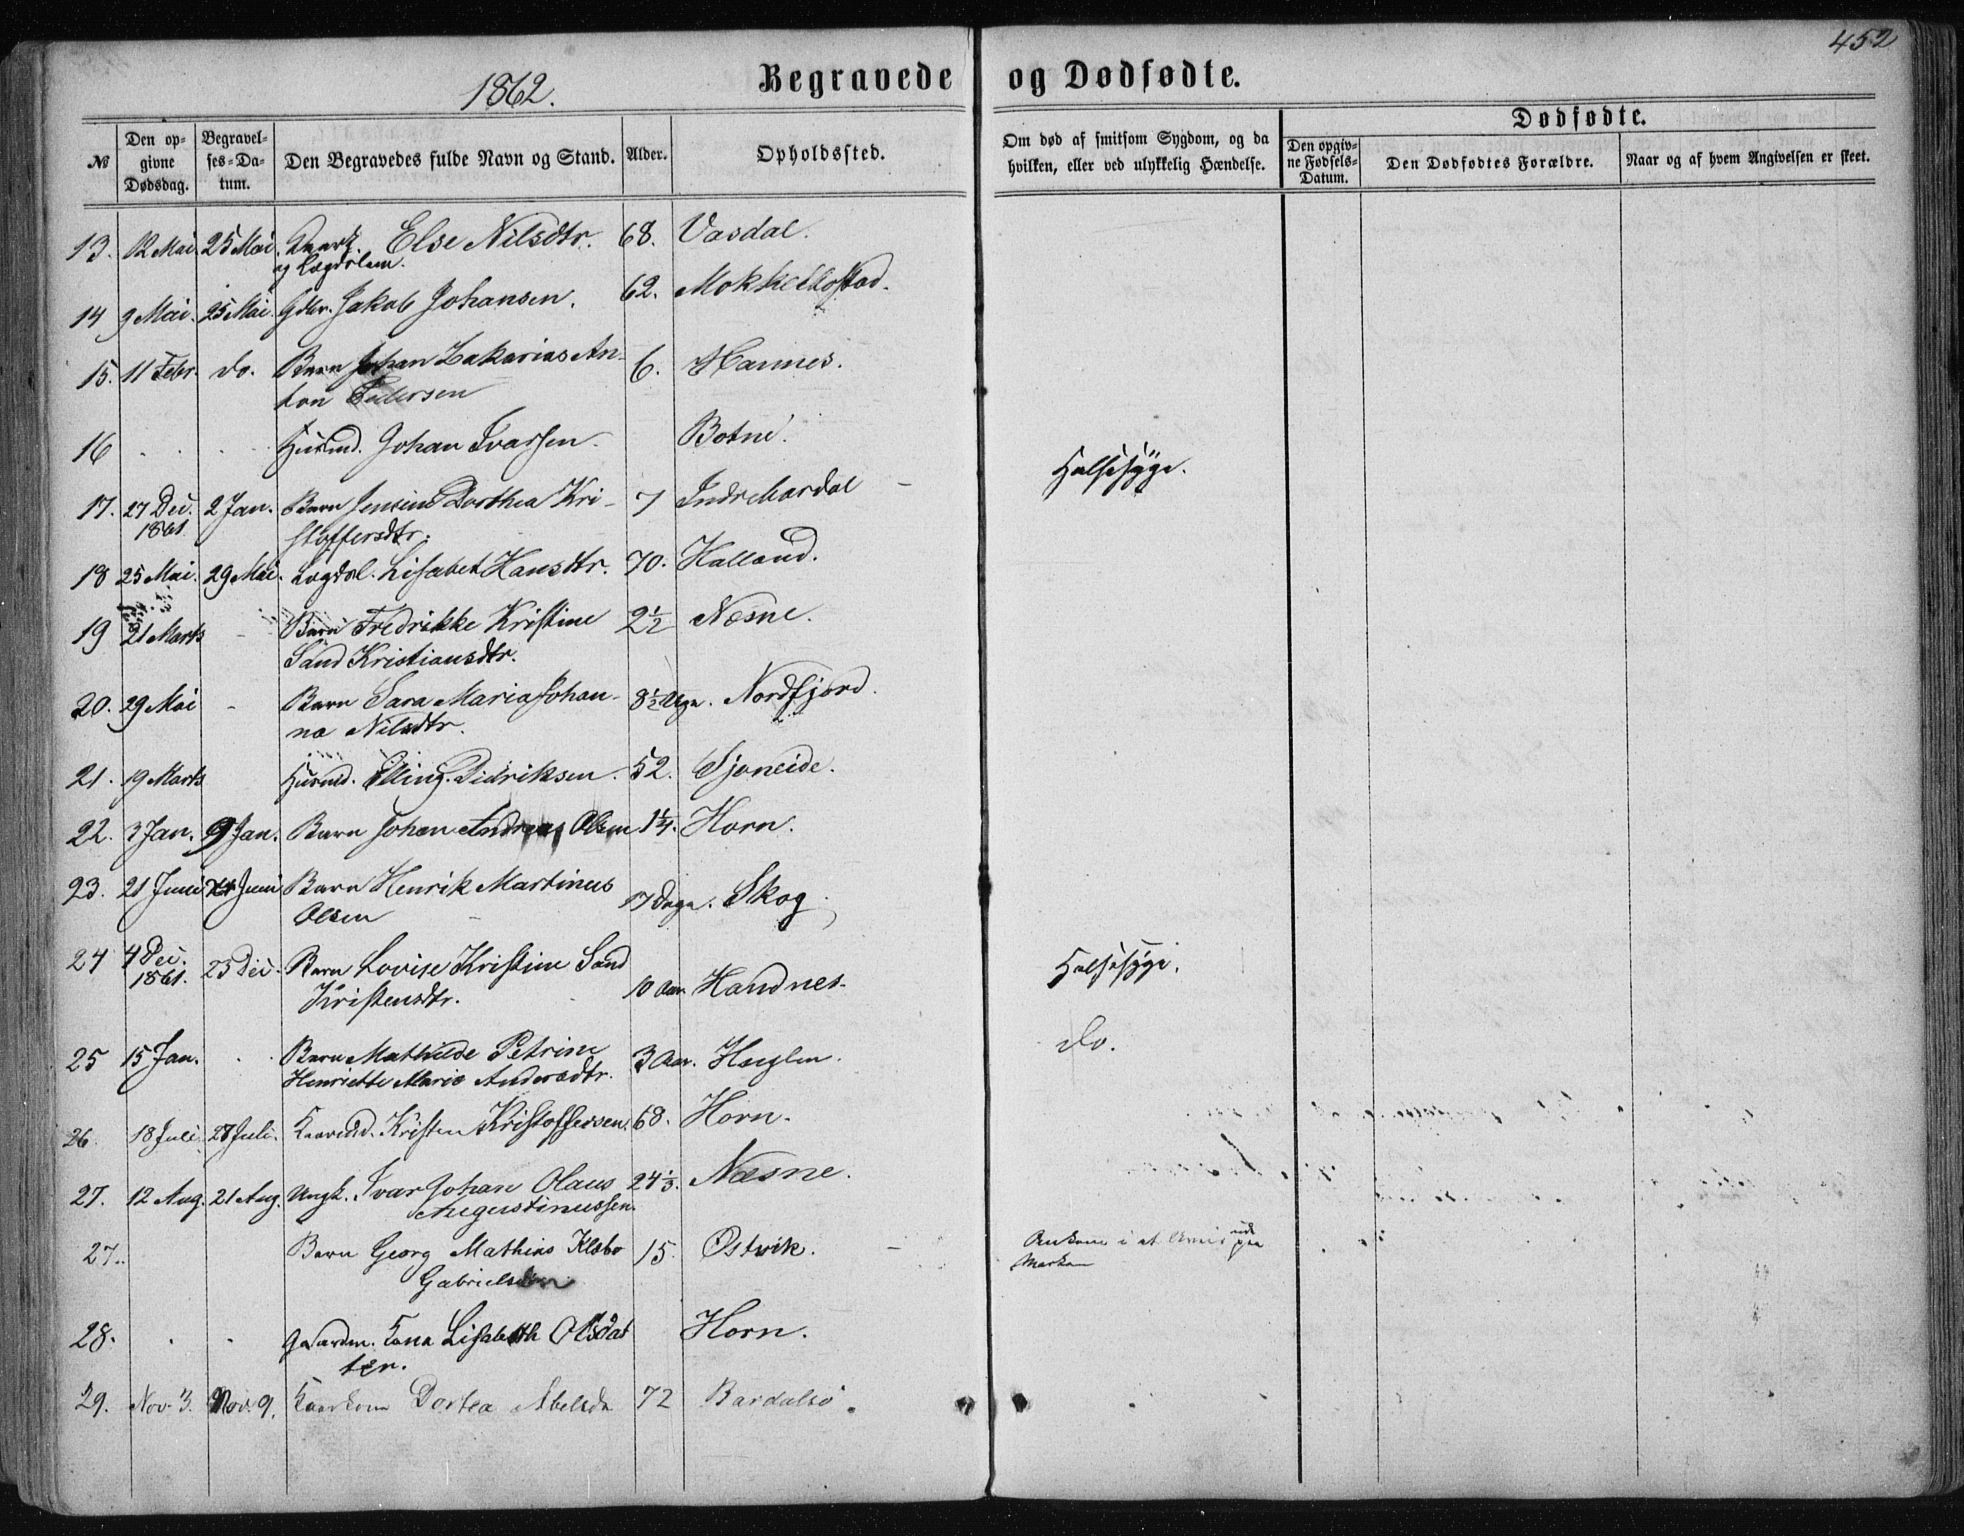 452
1862.
Begravede og Dødfødte.
Dødfødte.
№ Den opgivne Dødsdag. Begravelses-Datum. Den Begravedes fulde Navn og Stand. Alder. Opholdssted. Om død af smitsom Sygdom, og da hvilken, eller ved ulykkelig Hændelse. Den opgivne Fødsels-Datum. Den Dødfødtes Forældre. Naar og af hvem Angivelsen er skeet.
13. 12 Mai. 25 Mai. Else Nilsdtr. 68. Vasdal.
og Lægdslem.
14 9 Mai. 25 Mai. Gdbr. Jakob Johansen. 62.
15. 11 Febr. do. Barn Johan Zakarias An- 6. Hannes.
ton Pedersen
16 Huusmd. Johan Ivarsen. Botne.
17. 27 Dec. 2 Jan. Barn Jensine Dorthea Kri- 7 Indre Bardal Halsesyge.
1861. stoffersdtr.
18 25 Mai. 29 Mai. Lægdsl. Lisabet Hansdtr. 70. Halland.
19 21 Marts Barn Fredrikke Kristine 2½ Næsne.
Sand Kristiansdtr.
20. 29 Mai Barn Sara Maria Johan- 8½ Uger. Nordfjord.
na Nilsdtr.
21. 19 Marts Huusmd. Elling Didriksen. 52. Sjoneide.
22. 3 Jan. 9 Jan. Barn Johan Andreas Olsen 1¼. Horn.
23. 21 Juni 24 Juni Barn Henrik Martinus 17 Dage. Skog.
Olsen
24 4 Dec. 23 Dec. Barn Lovise Kristine Sand 10 Aar Handnes. Halsesyge.
1861. Kristensdtr.
25 15 Jan. Barn Mathilde Petrine 3 Aar. Huglen. do.
Henriette Marie Andersdtr.
26. 18 Juli. 28 Juli. Kaarmd. Kristen Kristoffersen. 68. Horn.
27. 12 Aug. 21 Aug. Ungk. Ivar Johan Olaus 24⅓. Næsne.
Augustinussen.
27. Barn Georg Mathias Klæbo 15. Østvik. Omkom i et Uveir ude paa
Gabrielsen Marken
28. Gaardm. Kona Lisabeth Olsdat Horn.
ter.
29. Nov. 3. Nov. 9. Kaarkone Dortea Abelsdr 72 Bardalsø.